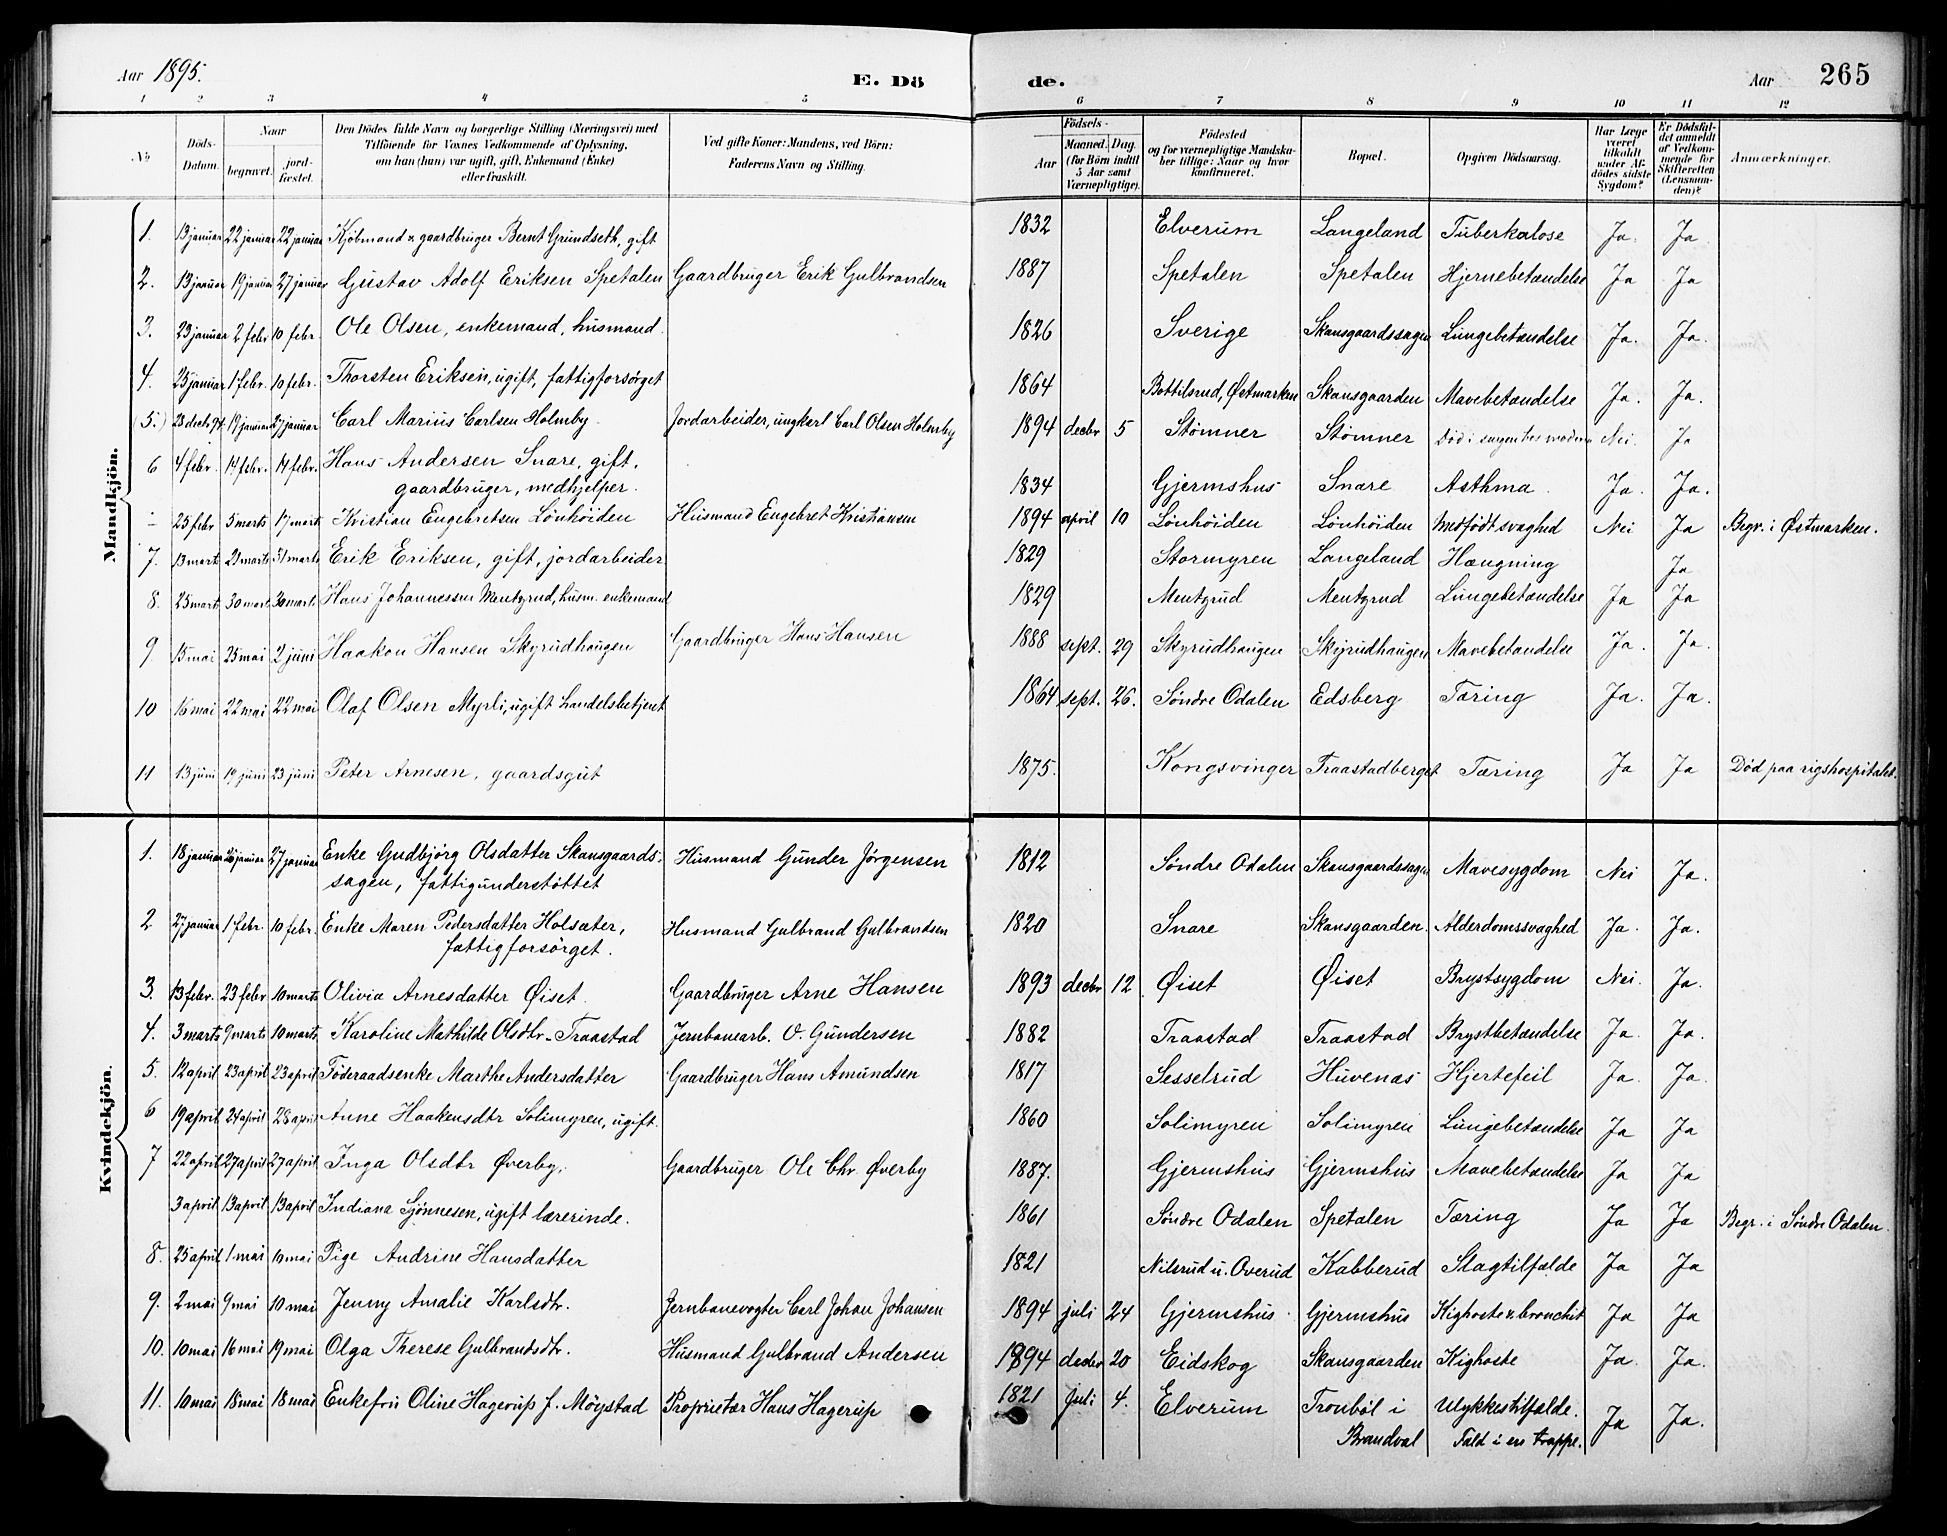 Aar 1895. E. Dö de. Aar 265
1 2 3 4 5 6 7 8 9 10 11 12
No Döds-Datum. Naar begravet. jord-fæstet. Den Dödes fulde Navn og borgerlige Stilling (Næringsvei) med Tilföiende for Voxnes Vedkommende af Oplysning, om han (hun) var ugift, gift, Enkemand (Enke) eller fraskilt. Ved gifte Koner: Mandens, ved Börn: Faderens Navn og Stilling. Födsels- Aar Maaned. Dag. (for Börn indtil 5 Aar samt Værnepligtige). Födested og for værnepligtige Mandskaber tillige: Naar og hvor konfirmeret. Bopæl. Opgiven Dödsaarsag. Har Læge været tilkaldt under Afdödes sidste Sygdom? Er Dödsfaldet anmeldt af Vedkommende for Skifteretten (Lensmanden)? Anmærkninger.
Mandkjön.
1. 13 januar 22 januar 22 januar Kjöbmand & gaardbruger Bernt Grundseth, gift 1832 Elverum Langeland Tuberkulose Ja. Ja
2. 13 januar 19 januar 27 januar Gustav Adolf Eriksen Spetalen Gaardbruger Erik Gulbrandsen 1887 Spetalen Spetalen Hjernebetændelse Ja Ja
3. 23 januar 2 febr 10 febr. Ole Olsen, enkemand, husmand. 1826 Sverige Skansgaardssagen Lungebetændelse Ja. Ja.
4. 25 januar 1 febr. 10 febr. Thorsten Eriksen, ugift, fattigforsörget 1864 Bottilsrud, Østmarken Skansgaarden Mavebetændelse Ja. Ja.
(5.) 23 decbr 94 19 januar 27 januar Carl Marius Carlsen Holmby. Jordarbeider, ungkarl Carl Olsen Holmby 1894 decbr 5 Stømner Stømner Död i sengen hos moderen Nei. Ja
6 4 febr. 14 febr. 14 febr. Hans Andersen Snare, gift,
gaardbruger, medhjelper. 1834 Gjermshus Snare Asthma. Ja. Ja.
- 25 febr 5 marts 17 marts Kristian Engebretsen Lönhöiden Husmand Engebret Kristiansen 1894 april 10 Lönhöiden Lönhöiden Medfödt svaghed Nei Ja Begr. i Østmarken.
7. 13 marts 21 marts 31 marts Erik Eriksen, gift, jordarbeider 1829 Stormyren Langeland Hængning Ja
8. 25 marts 30 marts 30 marts Hans Johannessen Mentzrud, husm. enkemand 1829 Mentzrud Mentzrud Lungebetændelse Ja Ja
9 15 mai 25 mai 2 juni Haakon Hansen Skyrudhaugen Gaardbruger Hans Hansen 1888 sept. 29 Skyrudhaugen Skyrudhaugen Mavebetændelse Ja. Ja.
10 16 mai 22 mai 22 mai Olaf Olsen Myrli, ugift handelsbetjent 1864 sept. 26. Søndre Odalen Edsberg Tæring Ja. Ja.
11 13 juni 19 juni 23 juni Peter Arnesen, gaardsgut 1875. Kongsvinger Traastadberget Tæring Ja Ja Død paa rigshospitalet.
Kvindekjön.
1. 18 januar 26 januar 27 januar Enke Gudbjörg Olsdatter Skansgaards-
sagen, fattigunderstöttet Husmand Gunder Jörgensen 1812 Søndre Odalen Skansgaardssagen Mavesygdom Nei Ja.
2 27 januar 1 febr. 10 febr. Enke Maren Pedersdatter Holsæter,
fattigforsörget. Husmand Gulbrand Gulbrandsen 1820 Snare Skansgaarden. Alderdomssvaghed Ja. Ja.
3. 13 febr. 23 febr 10 marts Olivia Arnesdatter Øiset. Gaardbruger Arne Hansen 1893 decbr 12 Øiset Øiset Brystsygdom Nei. Ja.
4. 3 marts 9 marts 10 marts Karoline Mathilde Olsdtr. Traastad Jernbanearb. O. Gundersen 1882 Traastad Traastad Brystbetændelse Ja. Ja.
5. 12 april 23 april 23 april Föderaadsenke Marthe Andersdatter Gaardbruger Hans Amundsen 1817 Sesselrud Huvenæs Hjertefeil Ja. Ja.
6 19 april 24 april 28 april Anne Haakensdtr Solimyren, ugift. 1860 Solimyren Solimyren Lungebetændelse Ja Ja
7 22 april 27 april 27 april Inga Olsdtr Øverby, Gaardbruger Ole Chr. Øverby 1887. Gjermshus Gjermshus Mavebetændelse Ja Ja
3 april 13 april 13 april Indiana Sjönnesen, ugift lærerinde. 1861 Søndre Odalen Spetalen Tæring Ja Ja Begr. i Søndre Odalen.
8. 25 april 1 mai 10 mai Pige Andrine Hansdatter 1821 Nilsrud u. Overud Kabberud Slagtilfælde Ja Ja
9. 2 mai 9 mai 10 mai Jenny Amalie Karlsdtr. Jernbanevogter Carl Johan Johansen 1894 juli 24 Gjermshus. Gjermshus Kighoste & bronchit Ja Ja
10. 10 mai 16 mai 19 mai Olga Therese Gulbrandsdtr. Husmand Gulbrand Andersen 1894 decbr 20 Eidskog Skansgaarden Kighoste Ja. Ja.
11. 10 mai 18 mai 18 mai Enkefru Oline Hagerup f. Möystad Proprietær Hans Hagerup 1821 Juli 4. Elverum Tronböl i
Brandval Ulykkestilfælde.
Fald i en trappe. Ja Ja.